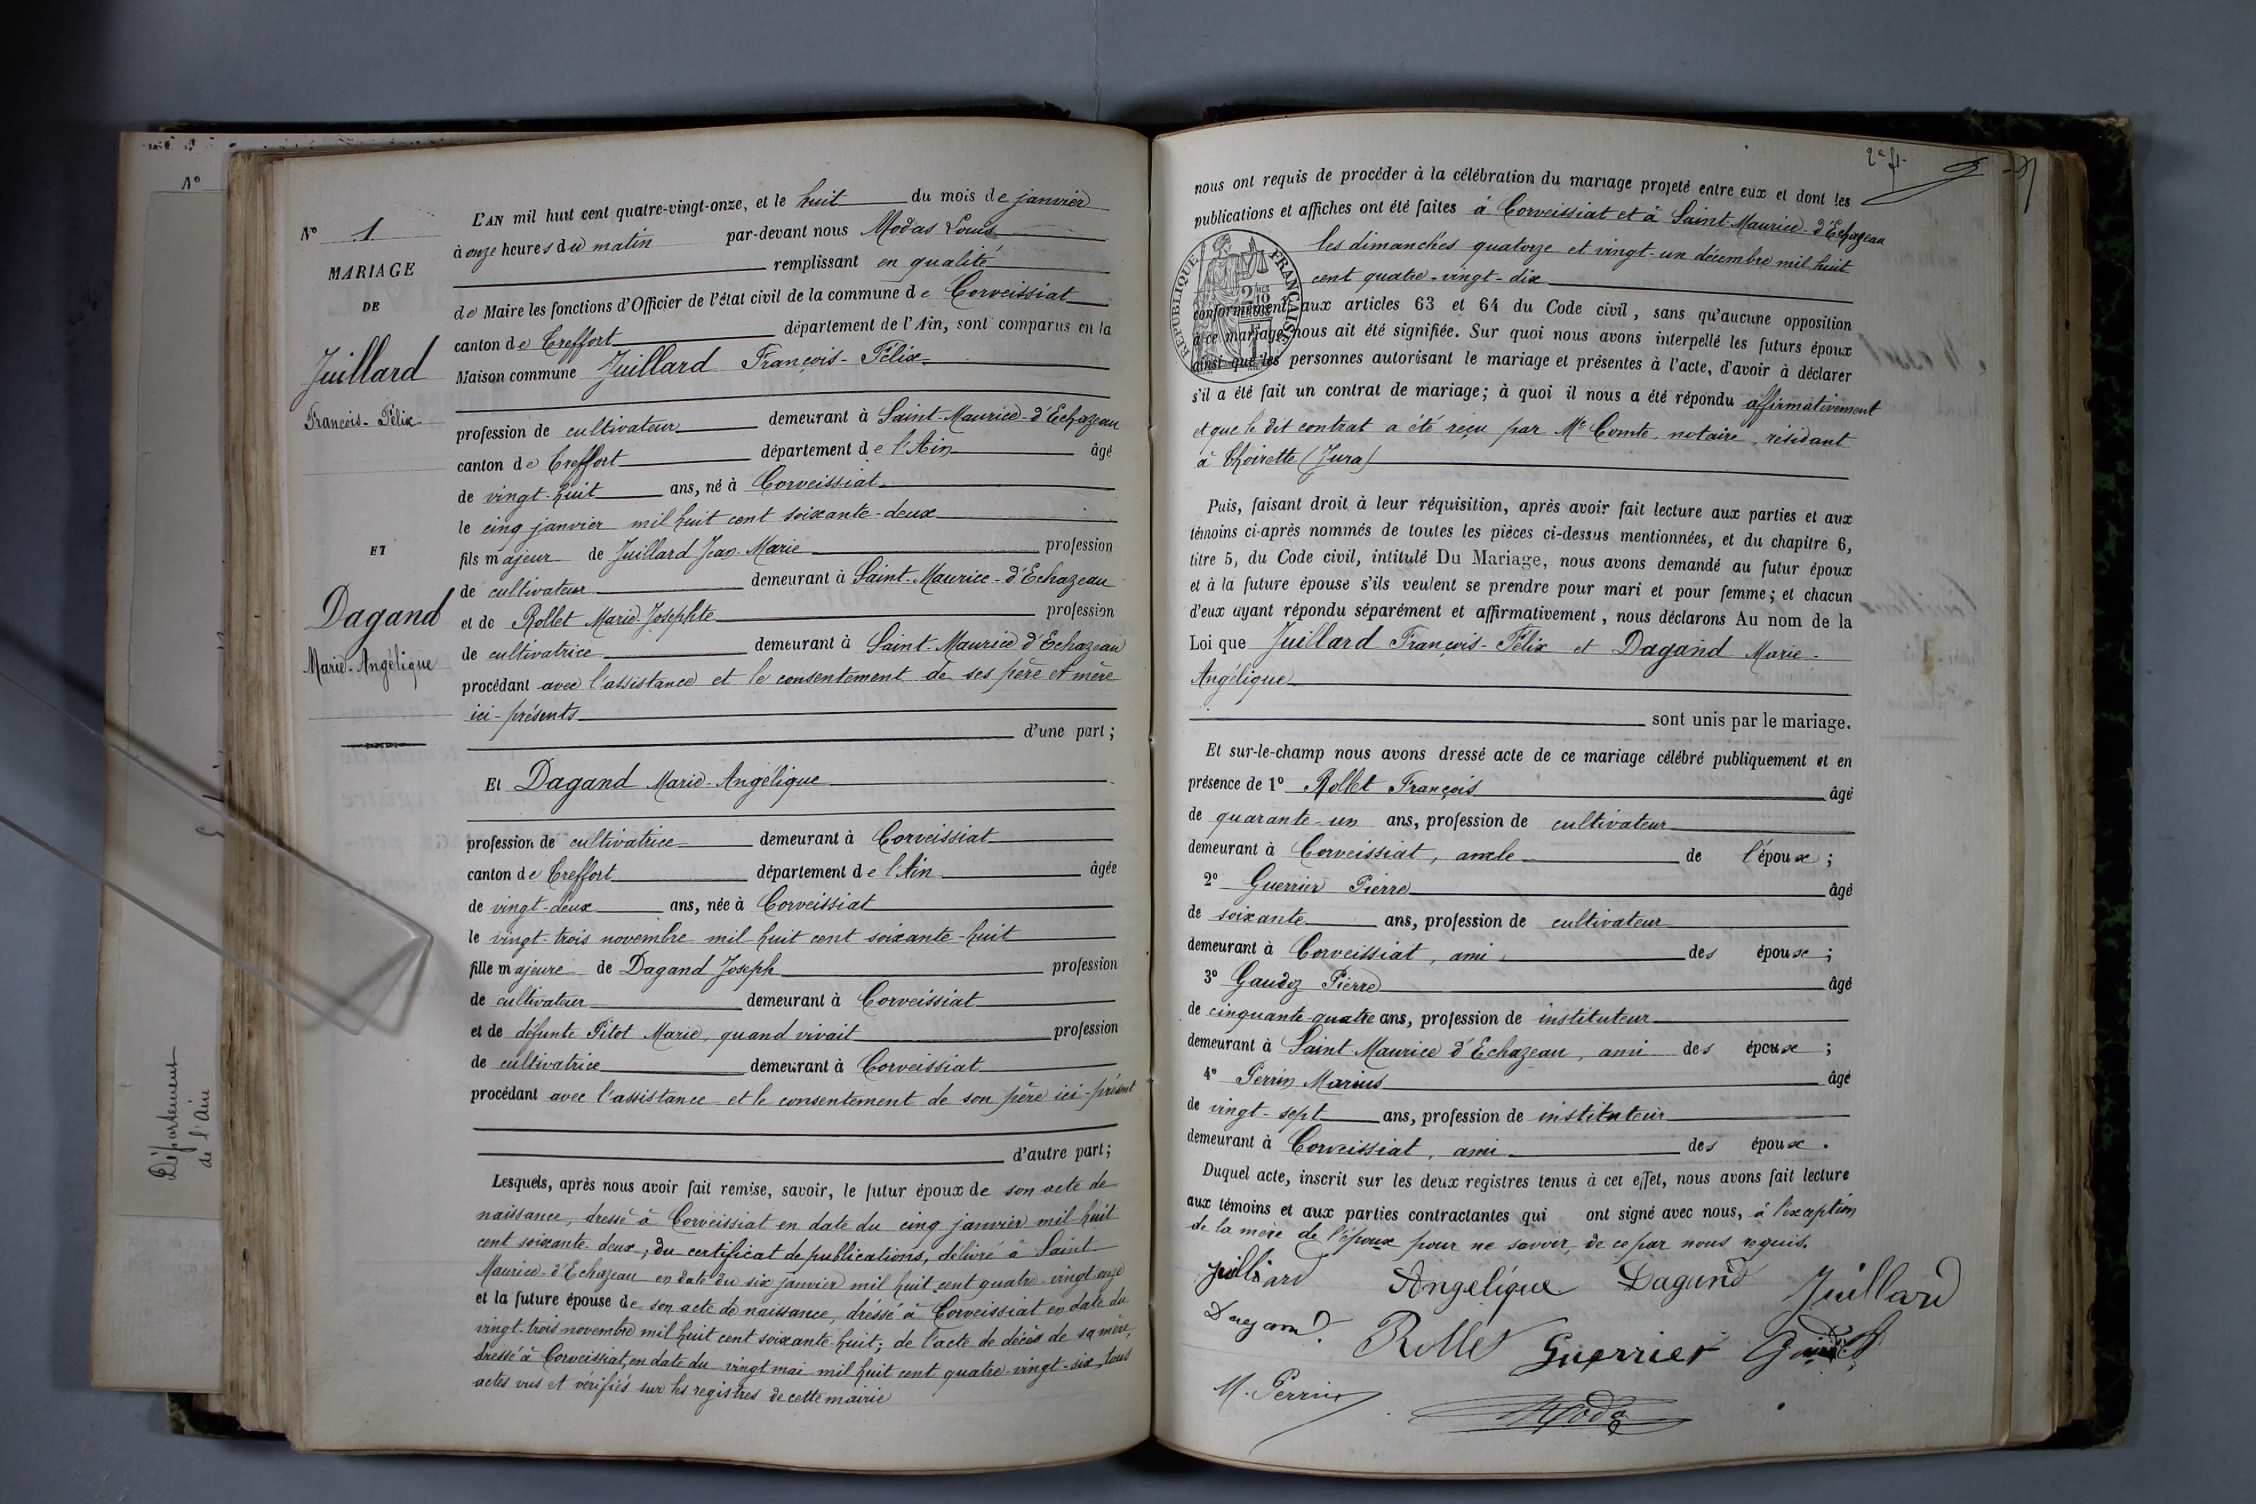 N°
Département
de l'Ain
N° 1
MARIAGE
DE
Juillard
François-Félix
ET
Dagand
Marie-Angélique
L'AN mil huit cent quatre-vingt-onze, et le huit du mois de janvier
à onze heures du matin par-devant nous Modas Louis
remplissant en qualité
de Maire les fonctions d'Officier de l'état civil de la commune de Corveissiat
canton de Treffort département de l'Ain, sont comparus en la
Maison commune Juillard François-Félix
profession de cultivateur demeurant à Saint-Maurice-d'Echazeau
canton de Treffort département de l'Ain âgé
de vingt-huit ans, né à Corveissiat
le cinq janvier mil huit cent soixante-deux
fils majeur de Juillard Jean-Marie profession
de cultivateur demeurant à Saint-Maurice-d'Echazeau
et de Rollet Marie-Josephte profession
de cultivatrice demeurant à Saint-Maurice d'Echazeau
procédant avec l'assistance et le consentement de ses père et mère
ici-présents
d'une part;
Et Dagand Marie-Angélique
profession de cultivatrice demeurant à Corveissiat
canton de Treffort département de l'Ain âgée
de vingt-deux ans, née à Corveissiat
le vingt-trois novembre mil huit cent soixante-huit
fille majeure de Dagand Joseph profession
de cultivateur demeurant à Corveissiat
et de défunte Pitot Marie, quand vivait profession
de cultivatrice demeurant à Corveissiat
procédant avec l'assistance et le consentement de son père ici-présent
d'autre part;
Lesquels, après nous avoir fait remise, savoir, le futur époux de son acte de
naissance, dressé à Corveissiat en date du cinq janvier mil huit
cent soixante-deux; du certificat de publications, délivré à Saint-
Maurice-d'Echazeau en date du six janvier mil huit cent quatre-vingt-onze
et la future épouse de son acte de naissance, dressé à Corveissiat en date du
vingt-trois novembre mil huit cent soixante-huit; de l'acte de décès de sa mère,
dressé à Corveissiat, en date du vingt mai mil huit cent quatre-vingt-six, tous
actes vus et vérifiés sur les registres de cette mairie
nous ont requis de procéder à la célébration du mariage projeté entre eux et dont les
publications et affiches ont été faites à Corveissiat et à Saint-Maurice-d'Echazeau
les dimanches quatorze et vingt-un décembre mil huit
cent quatre-vingt-dix
RÉPUBLIQUE FRANÇAISE
conformément aux articles 63 et 64 du Code civil, sans qu'aucune opposition
à ce mariage nous ait été signifiée. Sur quoi nous avons interpellé les futurs époux
ainsi que les personnes autorisant le mariage et présentes à l'acte, d'avoir à déclarer
s'il a été fait un contrat de mariage; à quoi il nous a été répondu affirmativement
et que le dit contrat a été reçu par Me Comte, notaire, résidant
à Thoirette (Jura)
Puis, faisant droit à leur réquisition, après avoir fait lecture aux parties et aux
témoins ci-après nommés de toutes les pièces ci-dessus mentionnées, et du chapitre 6,
titre 5, du Code civil, intitulé Du Mariage, nous avons demandé au futur époux
et à la future épouse s'ils veulent se prendre pour mari et pour femme; et chacun
d'eux ayant répondu séparément et affirmativement, nous déclarons Au nom de la
Loi que Juillard François-Félix et Dagand Marie-
Angélique
sont unis par le mariage.
Et sur-le-champ nous avons dressé acte de ce mariage célébré publiquement et en
présence de 1° Rollet François âgé
de quarante-un ans, profession de cultivateur
demeurant à Corveissiat, oncle de l'époux;
2° Guerrier Pierre âgé
de soixante ans, profession de cultivateur
demeurant à Corveissiat, ami des époux;
3° Gaudoz Pierre âgé
de cinquante-quatre ans, profession de instituteur
demeurant à Saint-Maurice d'Echazeau, ami des époux;
4° Perrin Marius âgé
de vingt-sept ans, profession de instituteur
demeurant à Corveissiat, ami des époux.
Duquel acte, inscrit sur les deux registres tenus à cet effet, nous avons fait lecture
aux témoins et aux parties contractantes qui ont signé avec nous, à l'exception
de la mère de l'époux pour ne savoir, de ce par nous requis.
Juillard Angélique Dagand Juillard
Dagand Rollet Guerrier
M. Perrin